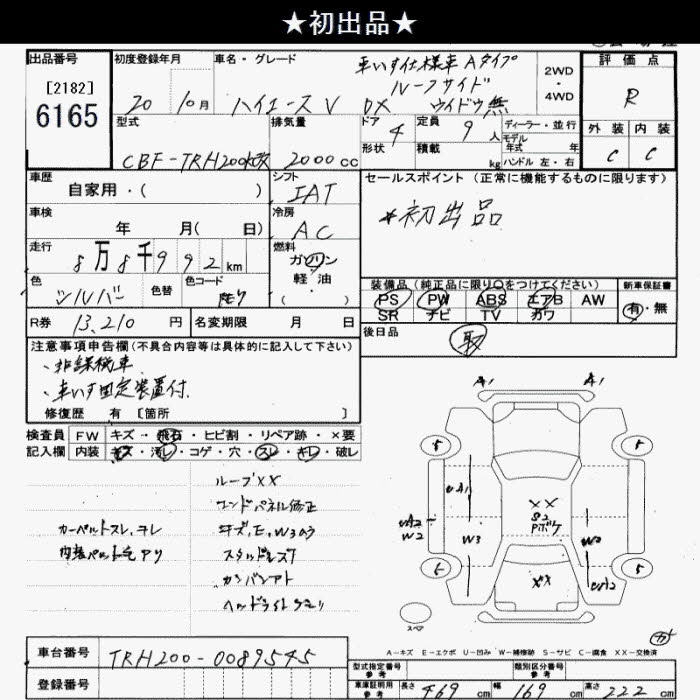 ★初出品★
出品番号 初度登録年月 車名・グレード 車いす仕様車 Aタイプ 2WD・4WD 評価点
[2182] ルーフサイド
6165 20 10月 ハイエースV DX ウイドウ無 R
型式 排気量 ドア 4 定員 9人 ディーラー・並行 外装 内装
CBF-TRH200K改 2000cc 形状 積載 kg モデル年式 年 ハンドル 左・右 C C
車歴 シフト セールスポイント (正常に機能するものに限ります)
自家用・( ) IAT
車検 冷房 *初出品
年 月( 日) AC
走行 燃料
8万8千992km ガソリン
色 色替 色コード 軽・油 装備品 (純正品に限り○をつけてください) 新車保証書
シルバー ( ・ ) PS PW ABS エアB AW 有・無
SR ナビ TV カワ
R券 13,210円 名変期限 月 日 後日品
取
注意事項申告欄(不具合内容等は具体的に記入して下さい)
・非課税車
・車いす固定装置付
修復歴 有 [箇所 ]
検査員 FW キズ・飛石・ヒビ割・リペア跡・×要
記入欄 内装 キズ・汚レ・コゲ・穴・スレ・キレ・破レ
ルーフXX
カーペットスレ、ヨレ
スタッドレス
カンバンアト
A1 A1
5 5
A1
W2 W3
XX
S2
5 5
XX
スペア
A-キズ E-エクボ U-凹み W-補修跡 S-サビ C-腐食 XX-交換済
車台番号 TRH200-0089545
登録番号
型式指定番号 参考 類別区分番号 参考
車庫証明用 参考 長さ 469cm 幅 169cm 高さ 222cm